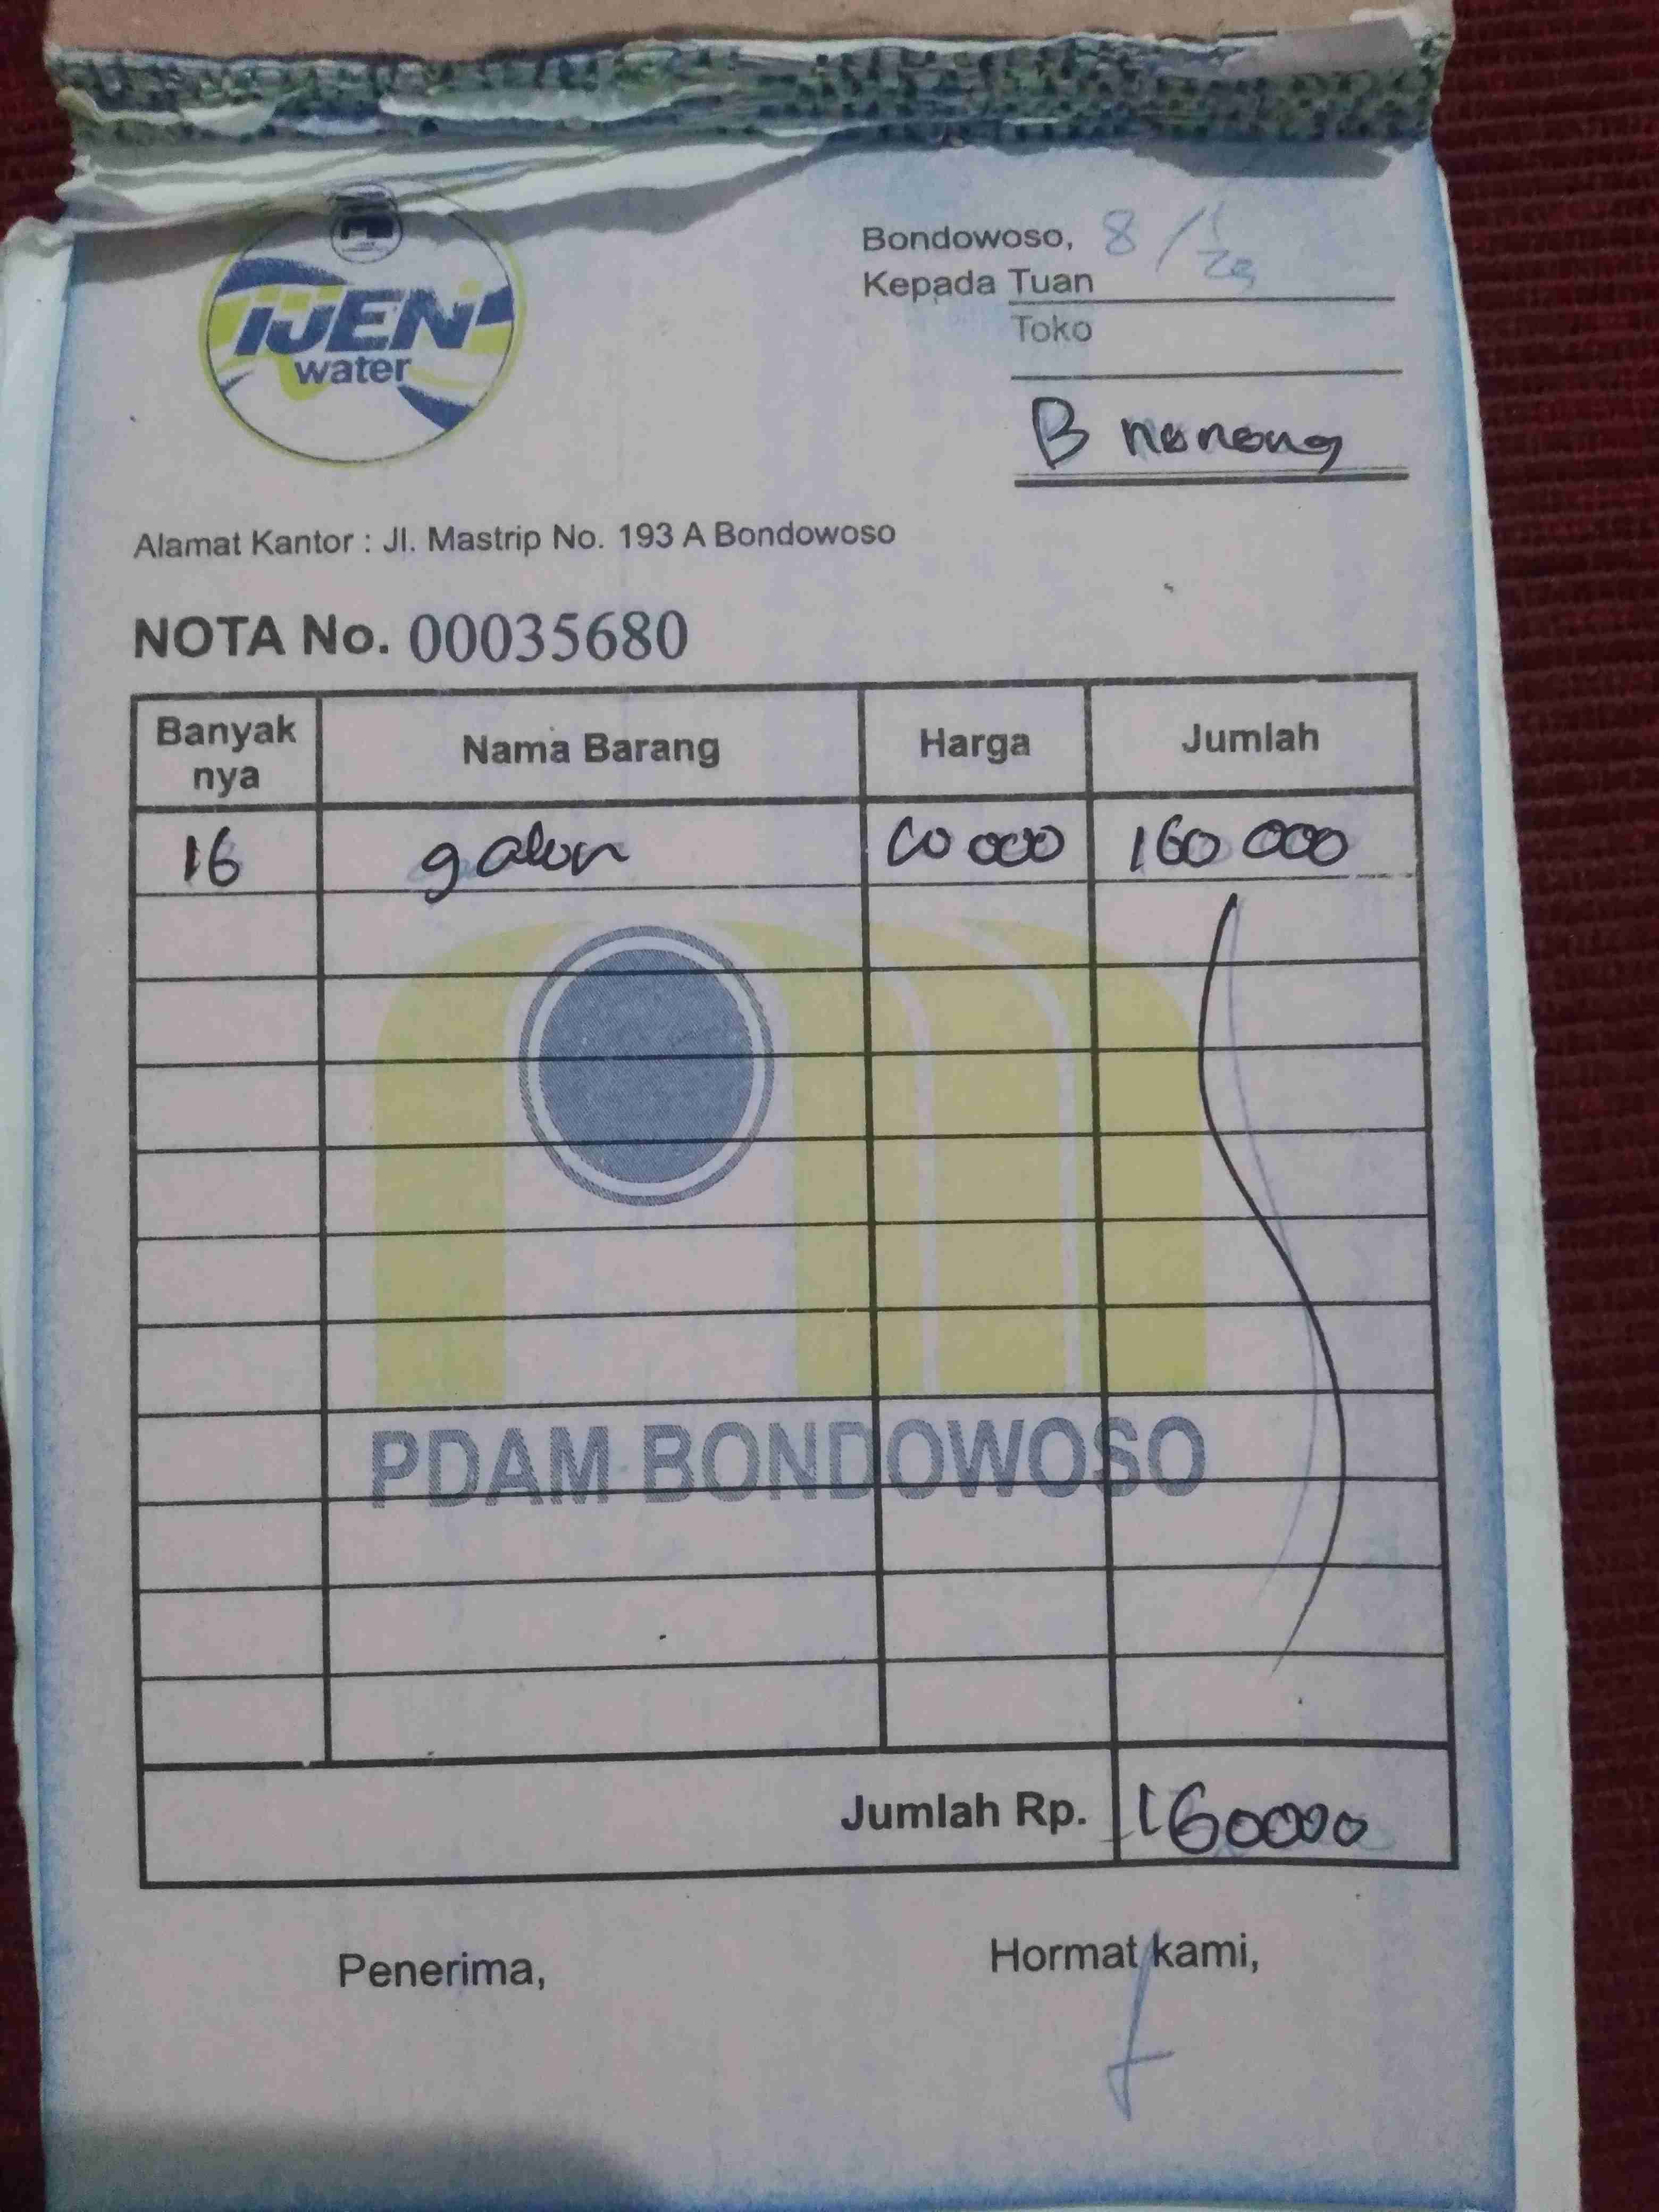 IJEN
water
Bondowoso, 8/1
Kepada Tuan
Toko
B nonong
Alamat Kantor : Jl. Mastrip No. 193 A Bondowoso
NOTA No. 00035680
Banyak nya Nama Barang Harga Jumlah
16 galon 10 000 160 000
PDAM BONDOWOSO
Jumlah Rp. 160000
Penerima, Hormat kami,